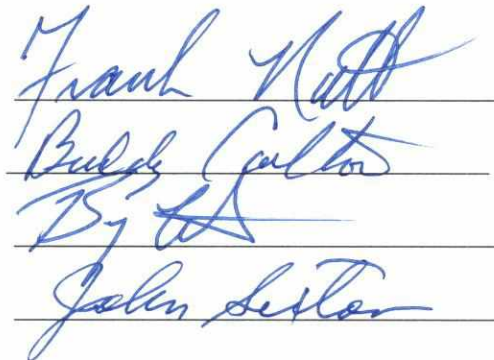 Frank Nutt
Buddy Carlton
By
John Sexton